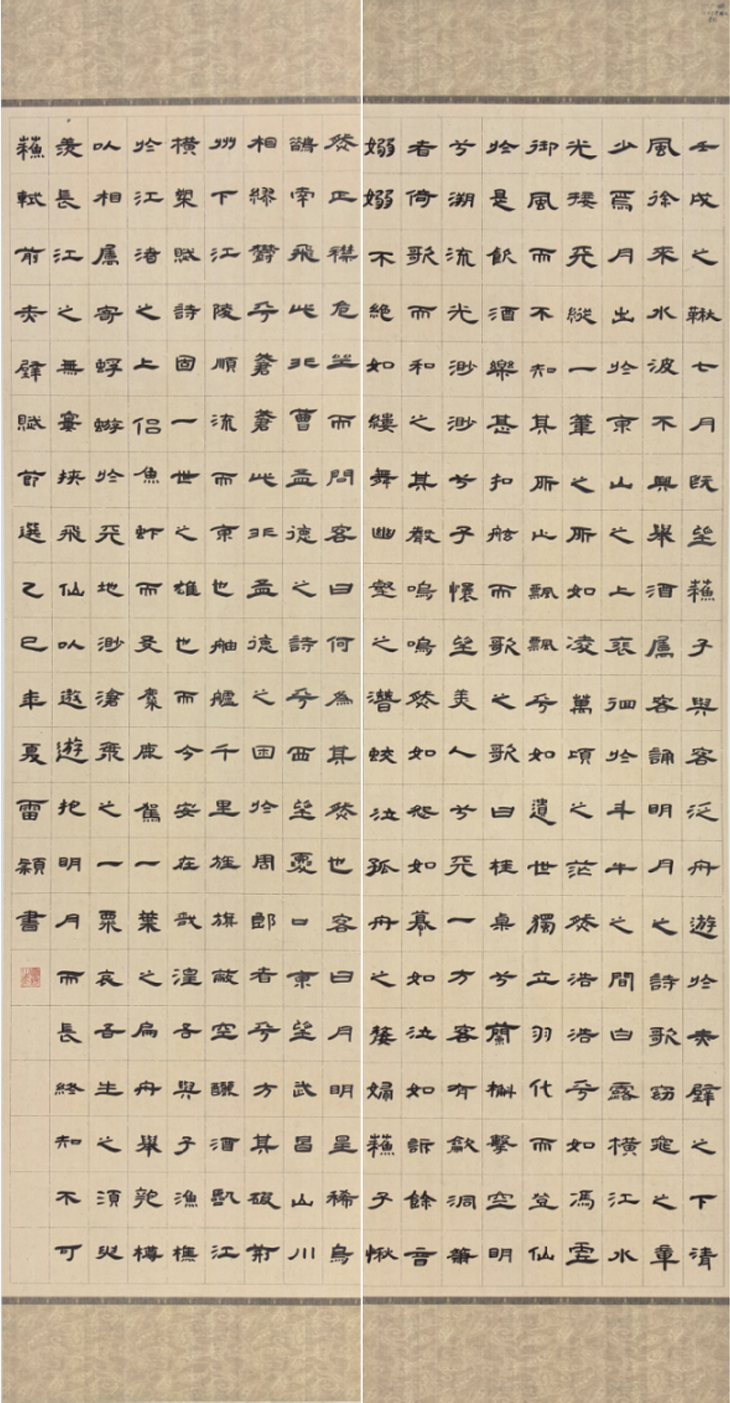 壬戌之秋七月既望蘇子與客泛舟遊於赤壁之下清
風徐來水波不興舉酒屬客誦明月之詩歌窈窕之章
少焉月出於東山之上裴徊於斗牛之間白露橫江水
光接天縱一葦之所如凌萬頃之茫然浩浩乎如馮虛
御風而不知其所止飄飄乎如遺世獨立羽化而登仙
於是飲酒樂甚扣舷而歌之歌曰桂桌兮蘭槳擊空明
兮溯流光渺渺兮予懷望美人兮天一方客有歙洞簫
者倚歌而和之其聲嗚嗚然如怨如慕如泣如訴餘音
嫋嫋不絕如縷舞幽壑之潛蛟泣孤舟之嫠婦蘇子愀
然正襟危坐而問客曰何為其然也客曰月明星稀烏
鵲南飛此非曹孟德之詩乎西望夏口東望武昌山川
相繆鬱乎蒼蒼此非孟德之困於周郎者乎方其破荊
州下江陵順流而東也舳艫千里旌旗蔽空釃酒臨江
橫槊賦詩固一世之雄也而今安在哉況吾與子漁樵
於江渚之上侶魚蝦而友麋鹿駕一葉之扁舟舉匏樽
以相屬寄蜉蝣於天地渺滄海之一粟哀吾生之須臾
羨長江之無窮挾飛仙以遨遊抱明月而長終知不可
蘇軾前赤壁賦節選乙巳年夏雷穎書